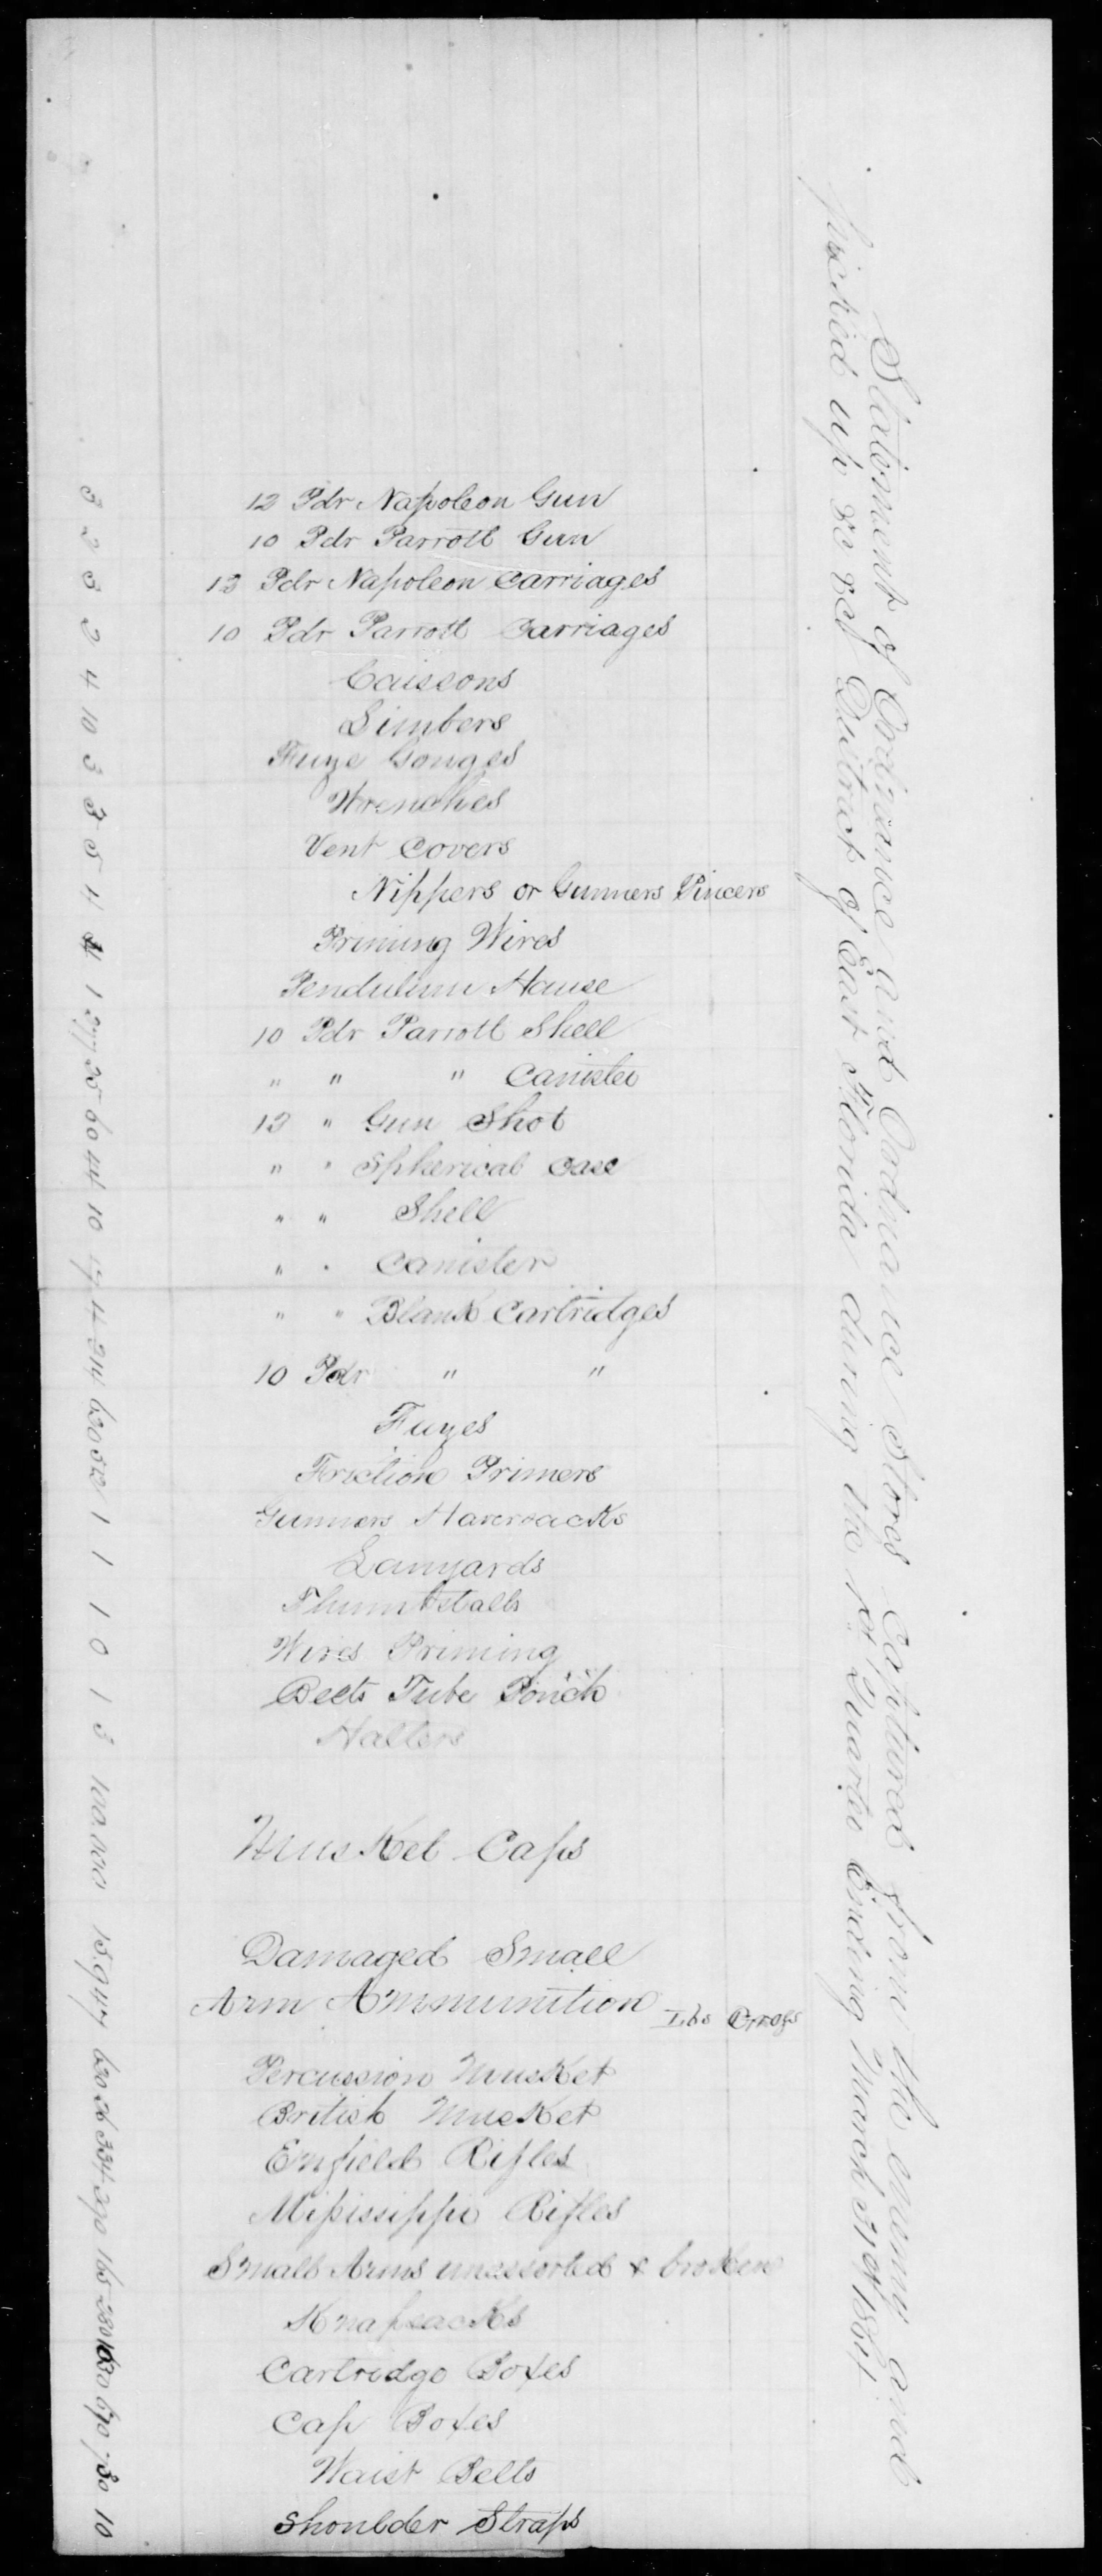 Statement of Ordnance and Ordnance Stores Captured from the enemy and
picked up &c &c District of East Florida during the 1st Quarter Ending March 31st 1864
12 Pdr Napoleon Gun
10 Pdr Parrott Gun
12 Pdr Napoleon Carriages
10 Pdr Parrott Carriages
Caissons
Limbers
Fuze Gouges
Wrenches
Vent Covers
Nippers or Gunners Pincers
Priming Wires
Pendulum Hause
10 Pdr Parrott Shell
" " " Canister
12 " Gun Shot
" " Spherical Case
" " Shell
" " Canister
" " Blank Cartridges
10 Pdr " "
Fuzes
Friction Primers
Gunners Haversacks
Lanyards
Thumbstalls
Wires Priming
Belts Tube Pouch
Halters
Musket Caps
Damaged Small
Arm Ammunition Lbs
Percussion Musket
British Musket
Enfield Rifles
Mississippi Rifles
Small Arms unassorted & broken
Knapsacks
Cartridge Boxes
Cap Boxes
Waist Belts
Shoulder Straps
3 2 3 2 4 10 3 3 5 4 4 1 25 60 44 10 17 4 214 620 520 1 1 1 0 1 3 100.000 15.947 620 26 334 290 165 280 1030 690 730 10